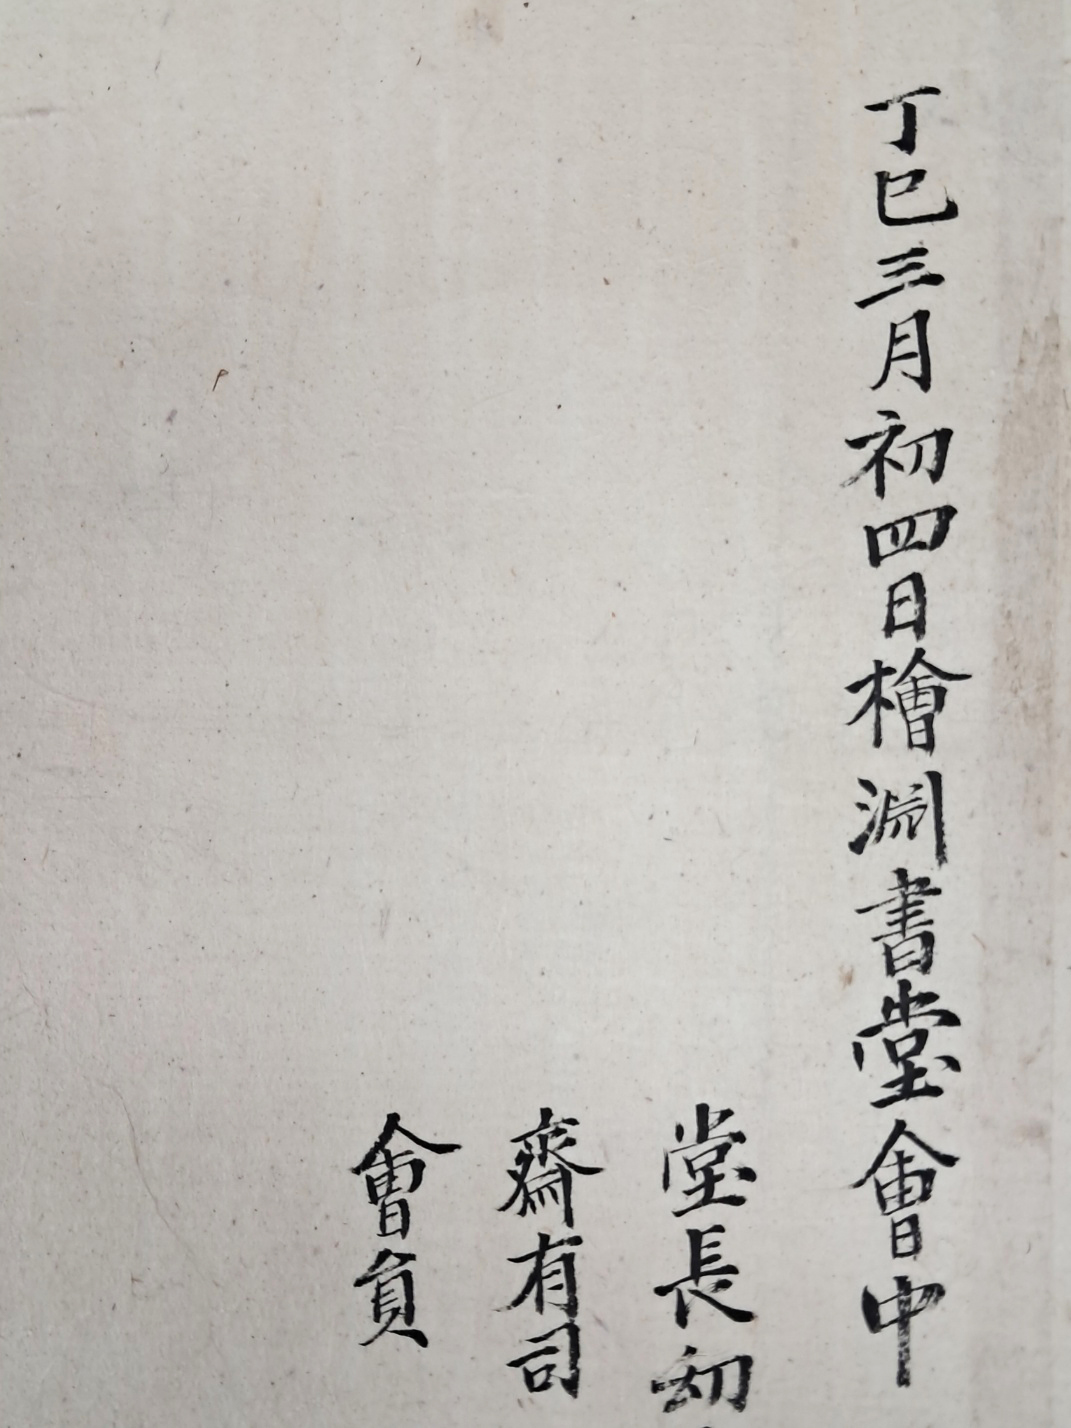 丁巳三月初四日檜淵書堂會中
堂長
齋有司
會員